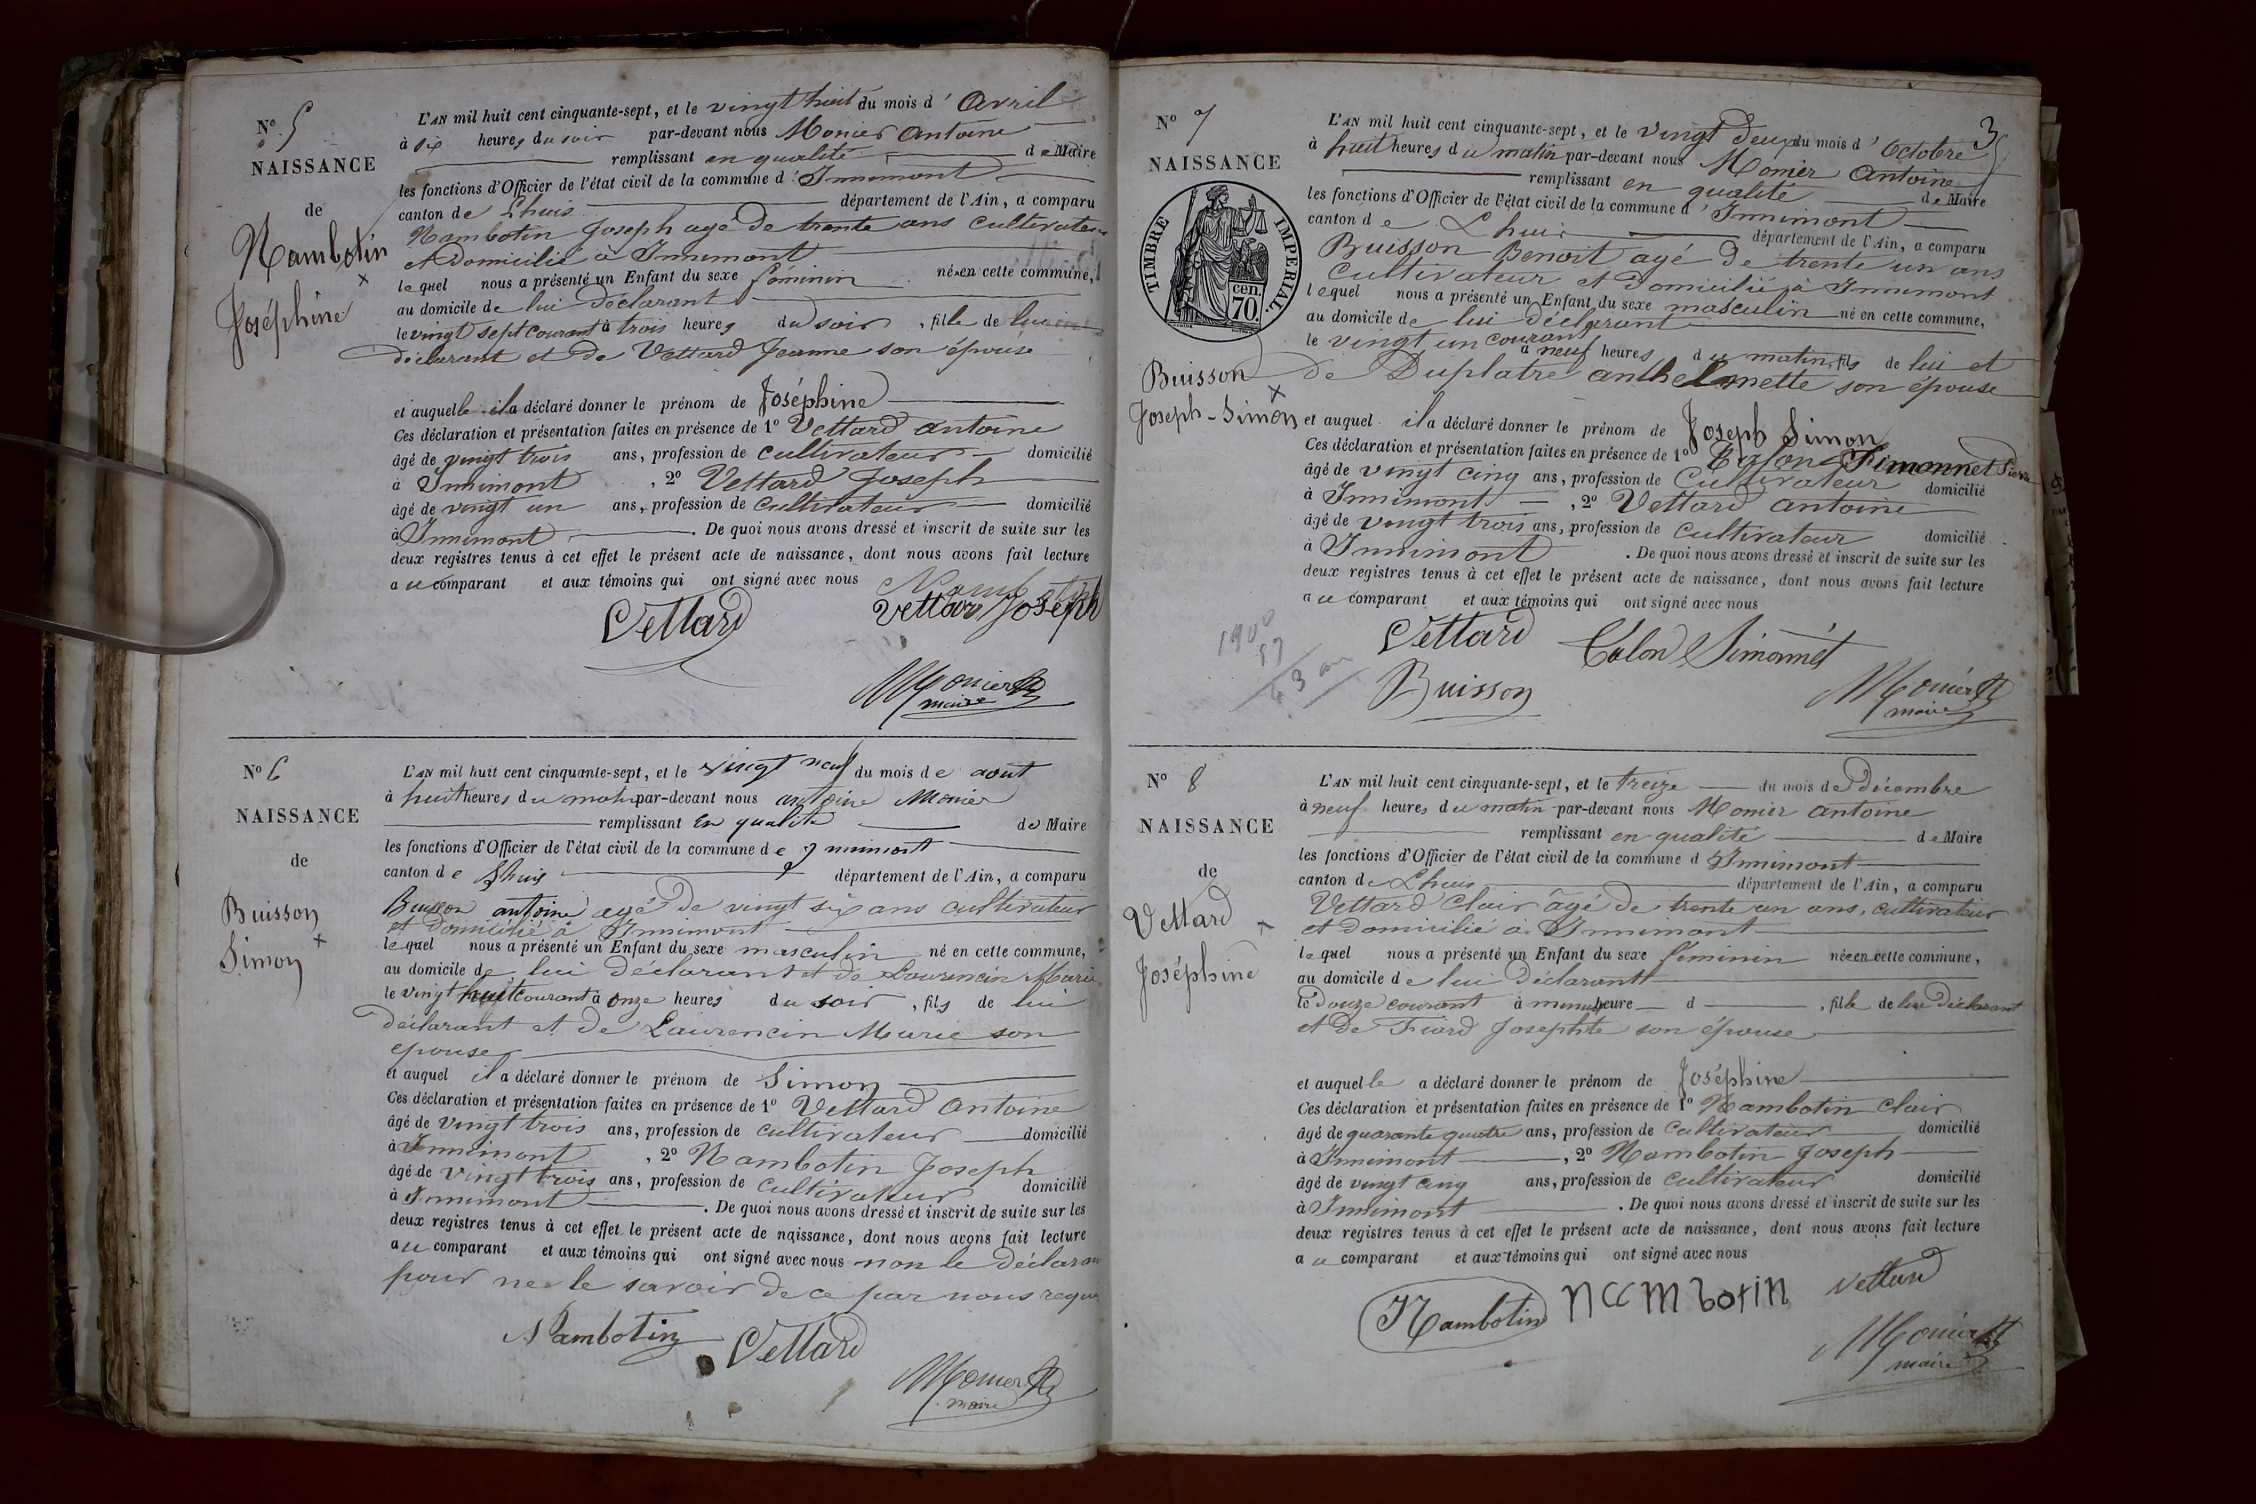 N° 5
NAISSANCE
de
Nambotin
Joséphine
L'AN mil huit cent cinquante-sept, et le vingt huit du mois d'Avril
à six heures du soir par-devant nous Monier Antoine
remplissant en qualité de Maire
les fonctions d'Officier de l'état civil de la commune d'Innimont
canton de Lhuis département de l'Ain, a comparu
Nambotin Joseph agé de trente ans cultivateur
et domicilié à Innimont
lequel nous a présenté un Enfant du sexe féminin née en cette commune,
au domicile de lui déclarant
le vingt sept courant à trois heures du soir, fille de lui
déclarant et de Vettard Jeanne son épouse
et auquelle il a déclaré donner le prénom de Joséphine
Ces déclaration et présentation faites en présence de 1° Vettard antoine
âgé de vingt trois ans, profession de cultivateur domicilié
à Innimont, 2° Vettard Joseph
âgé de vingt un ans, profession de cultivateur domicilié
à Innimont. De quoi nous avons dressé et inscrit de suite sur les
deux registres tenus à cet effet le présent acte de naissance, dont nous avons fait lecture
au comparant et aux témoins qui ont signé avec nous
Nambotin
Vettard Vettard Joseph
Monier
maire
N° 6
NAISSANCE
de
Buisson
Simon
L'AN mil huit cent cinquante-sept, et le vingt neuf du mois de aout
à huit heures du matin par-devant nous antoine Monier
remplissant en qualité de Maire
les fonctions d'Officier de l'état civil de la commune de innimont
canton de Lhuis département de l'Ain, a comparu
Buisson antoine agé de vingt six ans cultivateur
et domicilié à Innimont
lequel nous a présenté un Enfant du sexe masculin né en cette commune,
au domicile de lui déclarant et de Laurencin Marie
le vingt huit courant à onze heures du soir, fils de lui
déclarant et de Laurencin Marie son
epouse
et auquel il a déclaré donner le prénom de Simon
Ces déclaration et présentation faites en présence de 1° Vettard Antoine
âgé de vingt trois ans, profession de cultivateur domicilié
à Innimont, 2° Nambotin Joseph
âgé de vingt trois ans, profession de cultivateur domicilié
à Innimont. De quoi nous avons dressé et inscrit de suite sur les
deux registres tenus à cet effet le présent acte de naissance, dont nous avons fait lecture
au comparant et aux témoins qui ont signé avec nous non le déclarant
pour ne le savoir de ce par nous requis
Nambotin Vettard
Monier
maire
3
N° 7
NAISSANCE
TIMBRE IMPERIAL.
cen.
70.
Buisson
Joseph-Simon
L'AN mil huit cent cinquante-sept, et le vingt deux du mois d'Octobre
à huit heures du matin par-devant nous Monier Antoine
remplissant en qualité de Maire
les fonctions d'Officier de l'état civil de la commune d'Innimont
canton de Lhuis département de l'Ain, a comparu
Buisson Benoit agé de trente un ans
cultivateur et domicilié à Innimont
lequel nous a présenté un Enfant du sexe masculin né en cette commune,
au domicile de lui déclarant
le vingt un courant à neuf heures du matin, fils de lui et
de Duplatre anthelmette son épouse
et auquel il a déclaré donner le prénom de Joseph Simon
Ces déclaration et présentation faites en présence de 1° Talon Simonnet Pierre
âgé de vingt cinq ans, profession de cultivateur domicilié
à Innimont, 2° Vettard antoine
âgé de vingt trois ans, profession de cultivateur domicilié
à Innimont. De quoi nous avons dressé et inscrit de suite sur les
deux registres tenus à cet effet le présent acte de naissance, dont nous avons fait lecture
au comparant et aux témoins qui ont signé avec nous
1900
57
43 an
Vettard Talon Simonnet
Buisson
Monier
maire
N° 8
NAISSANCE
de
Vettard
Joséphine
L'AN mil huit cent cinquante-sept, et le treize du mois de décembre
à neuf heures du matin par-devant nous Monier Antoine
remplissant en qualité de Maire
les fonctions d'Officier de l'état civil de la commune d'Innimont
canton de Lhuis département de l'Ain, a comparu
Vettard Clair âgé de trente un ans, cultivateur
et domicilié à Innimont
lequel nous a présenté un Enfant du sexe féminin née en cette commune,
au domicile de lui déclarant
le douze courant à minuit heure d, fille de lui déclarant
et de Fiard Josephte son épouse
et auquelle a déclaré donner le prénom de Joséphine
Ces déclaration et présentation faites en présence de 1° Nambotin Clair
âgé de quarante quatre ans, profession de cultivateur domicilié
à Innimont, 2° Nambotin Joseph
âgé de vingt cinq ans, profession de cultivateur domicilié
à Innimont. De quoi nous avons dressé et inscrit de suite sur les
deux registres tenus à cet effet le présent acte de naissance, dont nous avons fait lecture
au comparant et aux témoins qui ont signé avec nous
Nambotin nambotin Vettard
Monier
maire